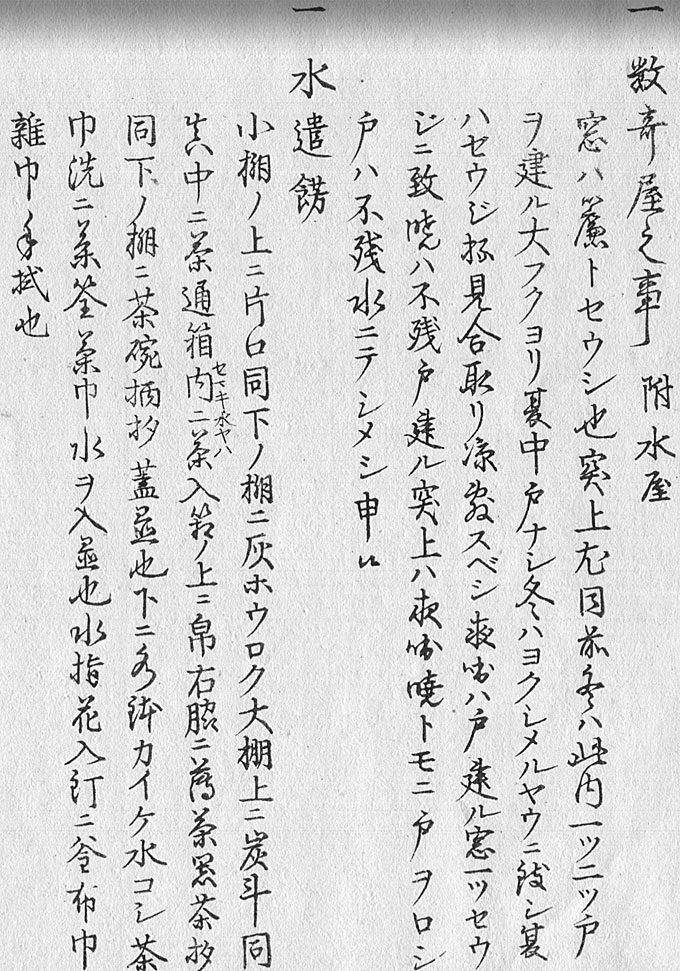 一 数奇屋之事 附水屋
窓ハ簾トセウシ也突上尤同前冬ハ此内一ツ二ツ戸
ヲ建ル大フクヨリ夏中戸ナシ冬ハヨクシメルヤウニ致シ夏
ハセウジ抔見合取リ涼敷スベシ夜咄ハ戸建ル窓一ツセウ
ジニ致暁ハ不残戸建ル突上ハ夜咄暁トモニ戸ヲロシ
戸ハ不残水ニテシメシ申候
一 水遣餝
小棚ノ上ニ片口同下ノ棚ニ灰ホウロク大棚上ニ炭斗同
真中ニ茶通箱内ニ茶入箱ノ上ニ帛右脇ニ薄茶器茶杓
セマキ水ヤハ
同下ノ棚ニ茶碗柄杓蓋置也下ニ水鉢カイケ水コシ茶
巾洗ニ茶筌茶巾水ヲ入置也水指花入釘ニ釜布巾
雑巾手拭也